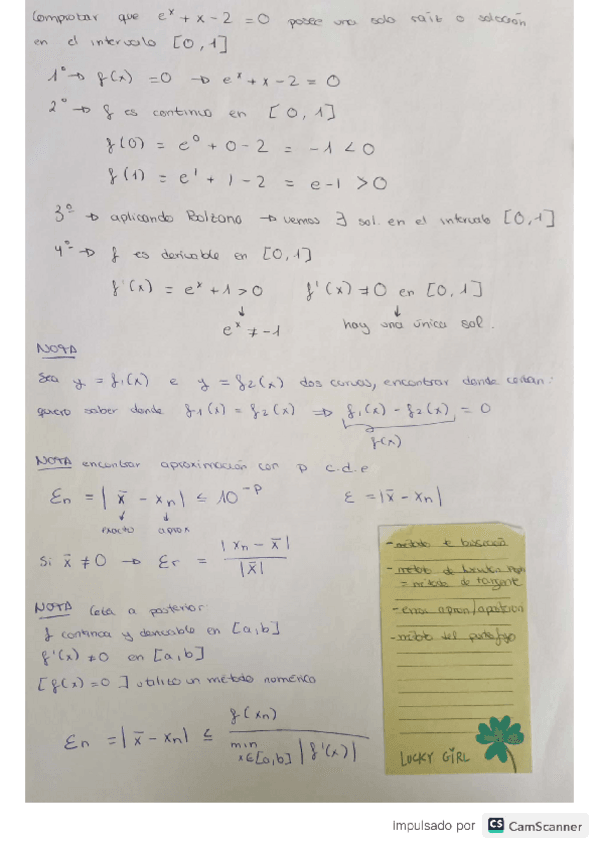 Comprobar que eˣ + x - 2 = 0 posee una sola raíz o solución
en el intervalo [0,1]
1º → f(x) = 0 → eˣ + x - 2 = 0
2º → f es continua en [0,1]
f(0) = e⁰ + 0 - 2 = -1 < 0
f(1) = e¹ + 1 - 2 = e-1 > 0
3º → aplicando Bolzano → vemos ∃ sol. en el intervalo [0,1]
4º → f es derivable en [0,1]
f'(x) = eˣ + 1 > 0 f'(x) ≠ 0 en [0,1]
↓ ↓
eˣ ≠ -1 hay una única sol.
NOTA
Sea y = f₁(x) e y = f₂(x) dos curvas, encontrar donde cortan:
quiero saber donde f₁(x) = f₂(x) ⇒ f₁(x) - f₂(x) = 0
f(x)
NOTA encontrar aproximación con p c.d.e
Ɛn = | x̄ - xn | ≤ 10⁻ᵖ Ɛ = | x̄ - xn |
↓ ↓
exacto aprox
Si x̄ ≠ 0 → Ɛr = | xn - x̄ | / | x̄ |
NOTA Cota a posterior:
f continua y derivable en [a,b]
f'(x) ≠ 0 en [a,b]
[f(x) = 0] utilizo un método numérico
Ɛn = | x̄ - xn | ≤ f(xn) / min x∈[a,b] | f'(x) |
- método de bisección
- método de
= método de tangente
- error
- método del
LUCKY GIRL
Impulsado por CS CamScanner